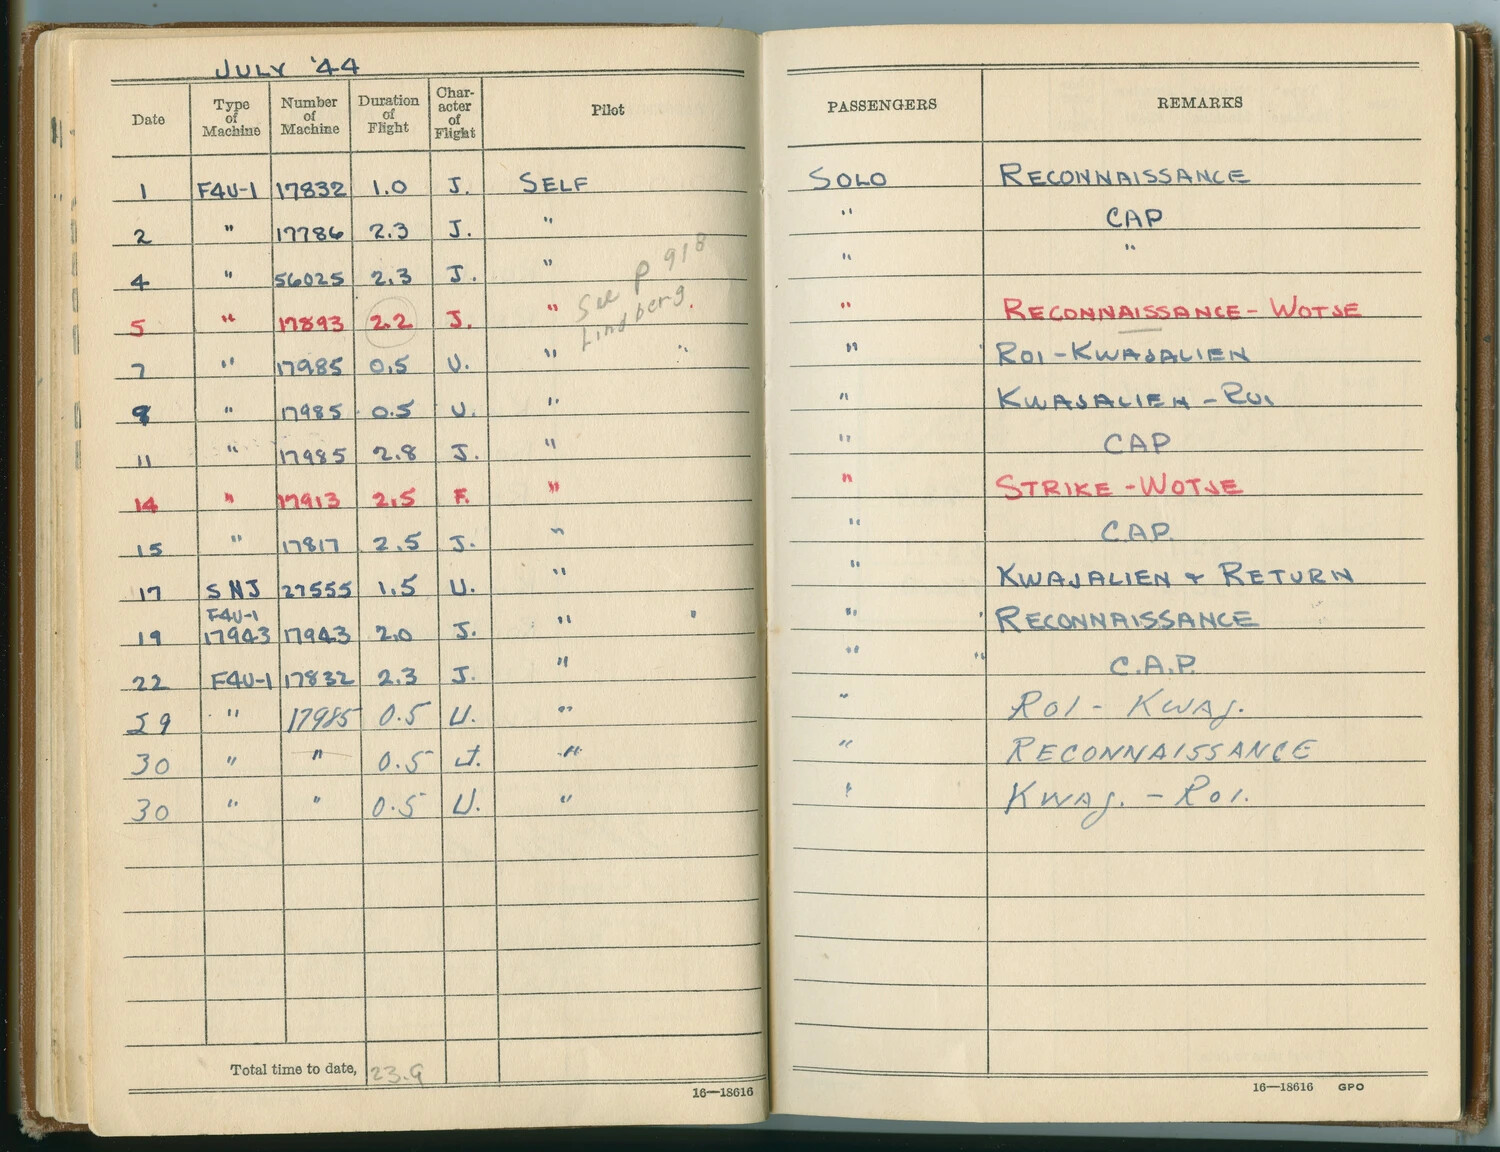 JULY '44
Date Type of Machine Number of Machine Duration of Flight Char- acter of Flight Pilot PASSENGERS REMARKS
1 F4U-1 17832 1.0 J. SELF SOLO RECONNAISSANCE
2 " 17786 2.3 J. " " CAP
4 " 56025 2.3 J. " " "
See p 918
Lindberg.
5 " 17893 2.2 J. " " RECONNAISSANCE - WOTJE
7 " 17985 0.5 U. " " ROI - KWAJALIEN
8 " 17985 0.5 U. " " KWAJALIEN - ROI
11 " 17985 2.8 J. " " CAP
14 " 17913 2.5 F. " " STRIKE - WOTJE
15 " 17817 2.5 J. " " CAP
17 SNJ 27555 1.5 U. " " KWAJALIEN & RETURN
F4U-1
19 17943 17943 2.0 J. " " RECONNAISSANCE
22 F4U-1 17832 2.3 J. " " C.A.P.
29 " 17985 0.5 U. " " ROI - KWAJ.
30 " " 0.5 J. " " RECONNAISSANCE
30 " " 0.5 U. " " KWAJ. - ROI.
Total time to date, 23.9
16—18616 16—18616 GPO